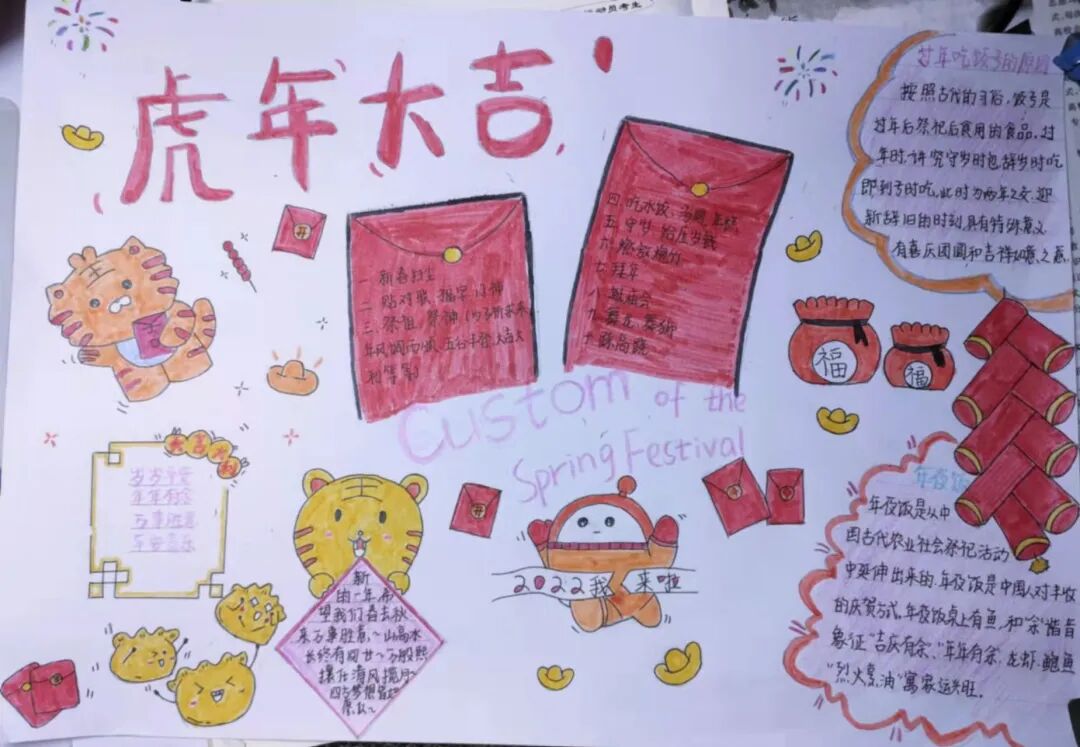 虎年大吉
过年吃饺子的原因
按照古代的习俗，饺子是
过年后祭祀后食用的食品，过
年时，讲究守岁时包辞岁时吃
即到子时吃，此时为两年之交，迎
新辞旧的时刻，具有特殊意义
有喜庆团圆和吉祥如意之意
一 新春扫尘
二 贴对联、福字、门神
三 祭祖、祭神（为了祈求来
年风调雨顺，五谷丰登，大吉大
利等等）
四 吃水饺、汤圆、年糕
五 守岁、给压岁钱
六 燃放爆竹
七 拜年
八 逛庙会
九 舞龙、舞狮
十 踩高跷
开
福
福
Custom of the
Spring Festival
大吉大利
岁岁平安
年年有余
万事胜意
平安喜乐
开
新
的一年希
望我们春去秋
来万事胜意～山高水
长终有回甘～万般熙
攘化清风揽月
四方梦想皆如
愿以～
2022我来啦
年夜饭
年夜饭是从中
国古代农业社会祭祀活动
中延伸出来的，年夜饭是中国人对丰收
的庆贺方式，年夜饭桌上有鱼，和"余"谐音
象征"吉庆有余"、"年年有余"，龙虾、鲍鱼
"烈火烹油"寓家运兴旺。